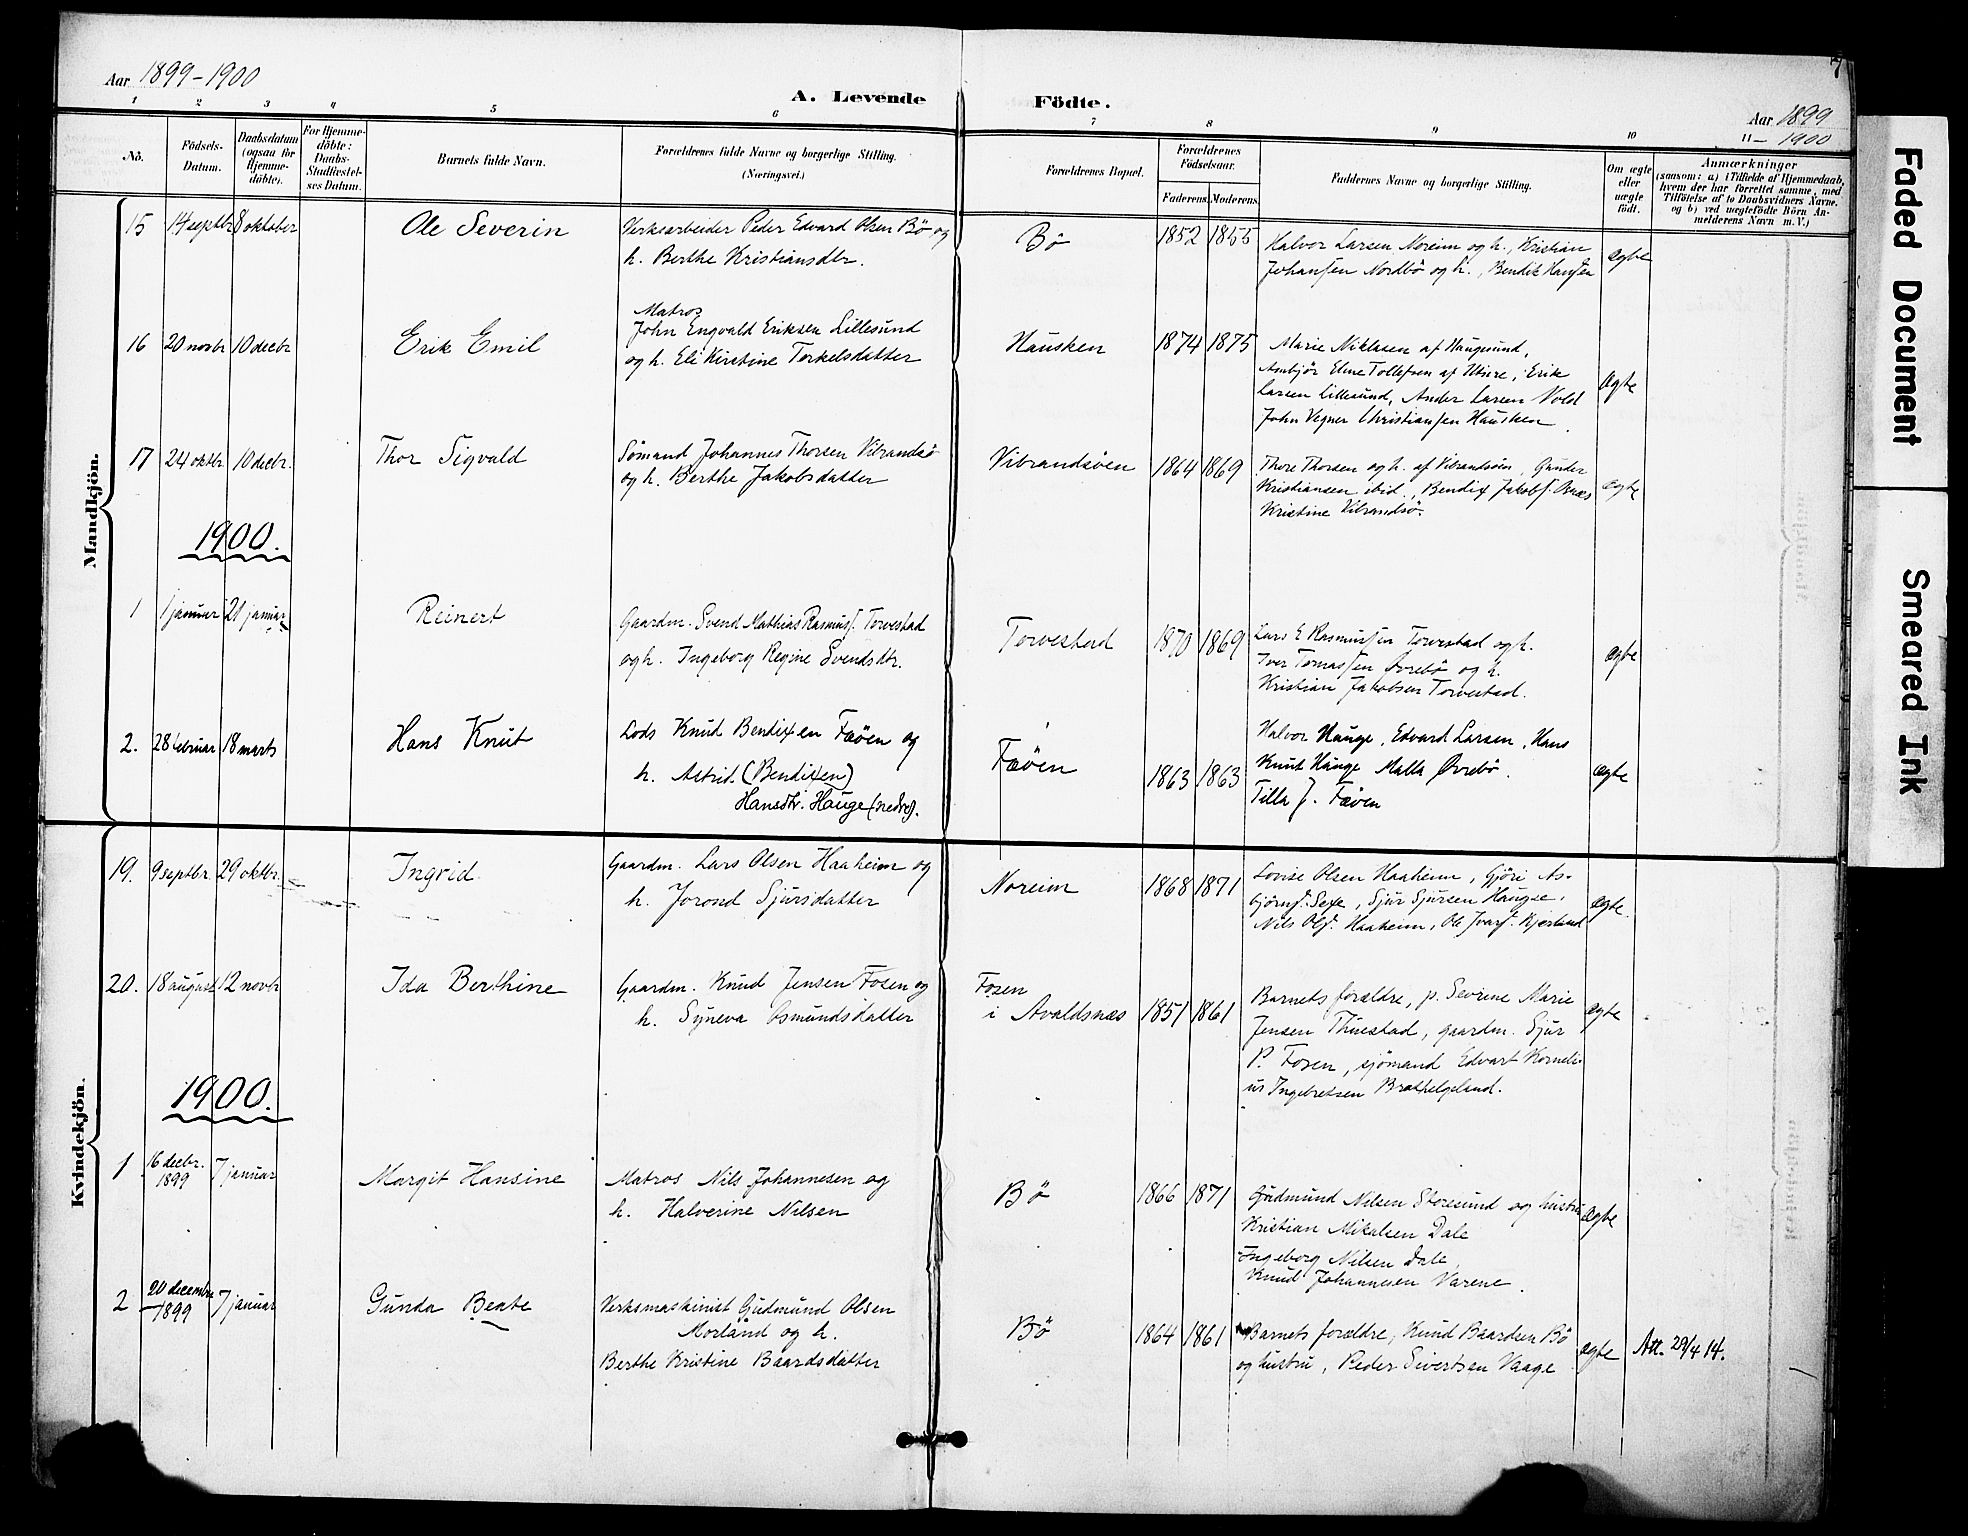 Aar 1899-1900
A. Levende Födte.
7
Aar 1899
11 – 1900
1 2 3 4 5 6 7 8 9 10
No.
Födsels-Datum.
Daabsdatum (ogsaa for Hjemme-döbte).
For Hjemme-döbte: Daabs-Stadfæstel-ses Datum.
Barnets fulde Navn.
Forældrenes fulde Navne og borgerlige Stilling.
(Næringsvei.)
Forældrenes Bopæl.
Forældrenes Födselsaar.
Faderens. Moderens.
Faddernes Navne og borgerlige Stilling.
Om ægte eller uægte födt.
Anmærkninger
(saasom: a) i Tilfælde af Hjemmedaab, hvem der har forrettet samme, med Tilföielse af to Daabsvidners Navne. og b) ved uægtefödte Börn An-melderens Navn m.V.)
Mandkjön.
15 14 septbr 8 oktober Ole Severin
Verksarbeider Peder Edvard Olsen Bö og
h. Berthe Kristiansdtr.
Bö 1852 1855
Halvor Larsen Noreim og h., Kristian
Johansen Nordbö og h., Bendik Hansen
ægte
16 20 novbr 10 decbr Erik Emil
Matros
John Engvald Eriksen Lillesund
og h. Eli Kirstine Torkelsdatter
Hausken 1874 1875
Marie Niklasen af Haugesund,
Elene Tollefsen af Utsire, Erik
Larsen Lillesund, Ander Larsen Vold
John Vegner Christiansen Hausken.
ægte
17 24 oktbr 10 decbr. Thor Sigvald
Sömand Johannes Thorsen Vibrandsö
og h. Berthe Jakobsdatter
Vibrandsöen 1864 1869
Thore Thorsen og h. af Vibrandsöen, Gunder
Kristiansen ibid., Bendix Jakobs.
Kristine Vibrandsö.
ægte
1900.
1 1 januar 21 januar Reinert
Gaardm. Svend Mathias Rasmuss. Torvestad
og h. Ingeborg Regine Svendsdtr.
Torvestad 1870 1869
Lars E Rasmussen Torvestad og h.
Iver Tomassen Øvrebö og h.
Kristian Jakobsen Torvestad.
ægte
2. 28 februar 18 marts Hans Knut
Lods Knud Bendixen Fæöen og
h. Astrid (Bendixen)
Hansdtr. Hauge (nedre).
Fæöen 1863 1863
Halvor Hauge, Edvard Larsen, Hans
Knut Hauge Malla Øvrebö.
Tilla J. Fæöen
ægte
Kvindekjön.
19. 9 septbr. 29 oktbr. Ingrid
Gaardm. Lars Olsen Haaheim og
h. Jorond Sjursdatter
Noreim 1868 1871
Lovise Olsen Haaheim, Gjöri As-
björns. Sexe, Sjur Sjursen Haugse,
Nils Ols. Haaheim, Ole Ivars. Kjerland
ægte.
20. 18 august 12 novbr Ida Berthine
Gaardm. Knud Jensen Fosen og
h. Syneva Osmundsdatter
Fosen
i Avaldsnæs 1851 1861
Barnets forældre, p. Sevrine Marie
Jensen Thuestad, gaardm. Sjur
P. Fosen, sjömand Edvart Korneli-
us Ingebretsen Brathelgeland.
ægte
1900.
1 16 decbr. 1899 7 januar Margit Hansine
Matros Nils Johannesen og
h. Halverine Nilsen
Bö 1866 1871
Gudmund Nilsen Storesund og hustru
Kristian Mikalsen Dale
Ingeborg Nilsen Dale,
Knud Johannesen Varene.
ægte
2 20 decembr 1899 7 januar Gunda Beate
Verksmaskinist Gudmund Olsen
Morland og h.
Berthe Kristine Baardsdatter
Bö 1864 1861
Barnets forældre, Knud Baardsen Bö
og hustru, Peder Sivertsen Vaage
ægte
Att. 29/4 14.
Faded Document
Smeared Ink